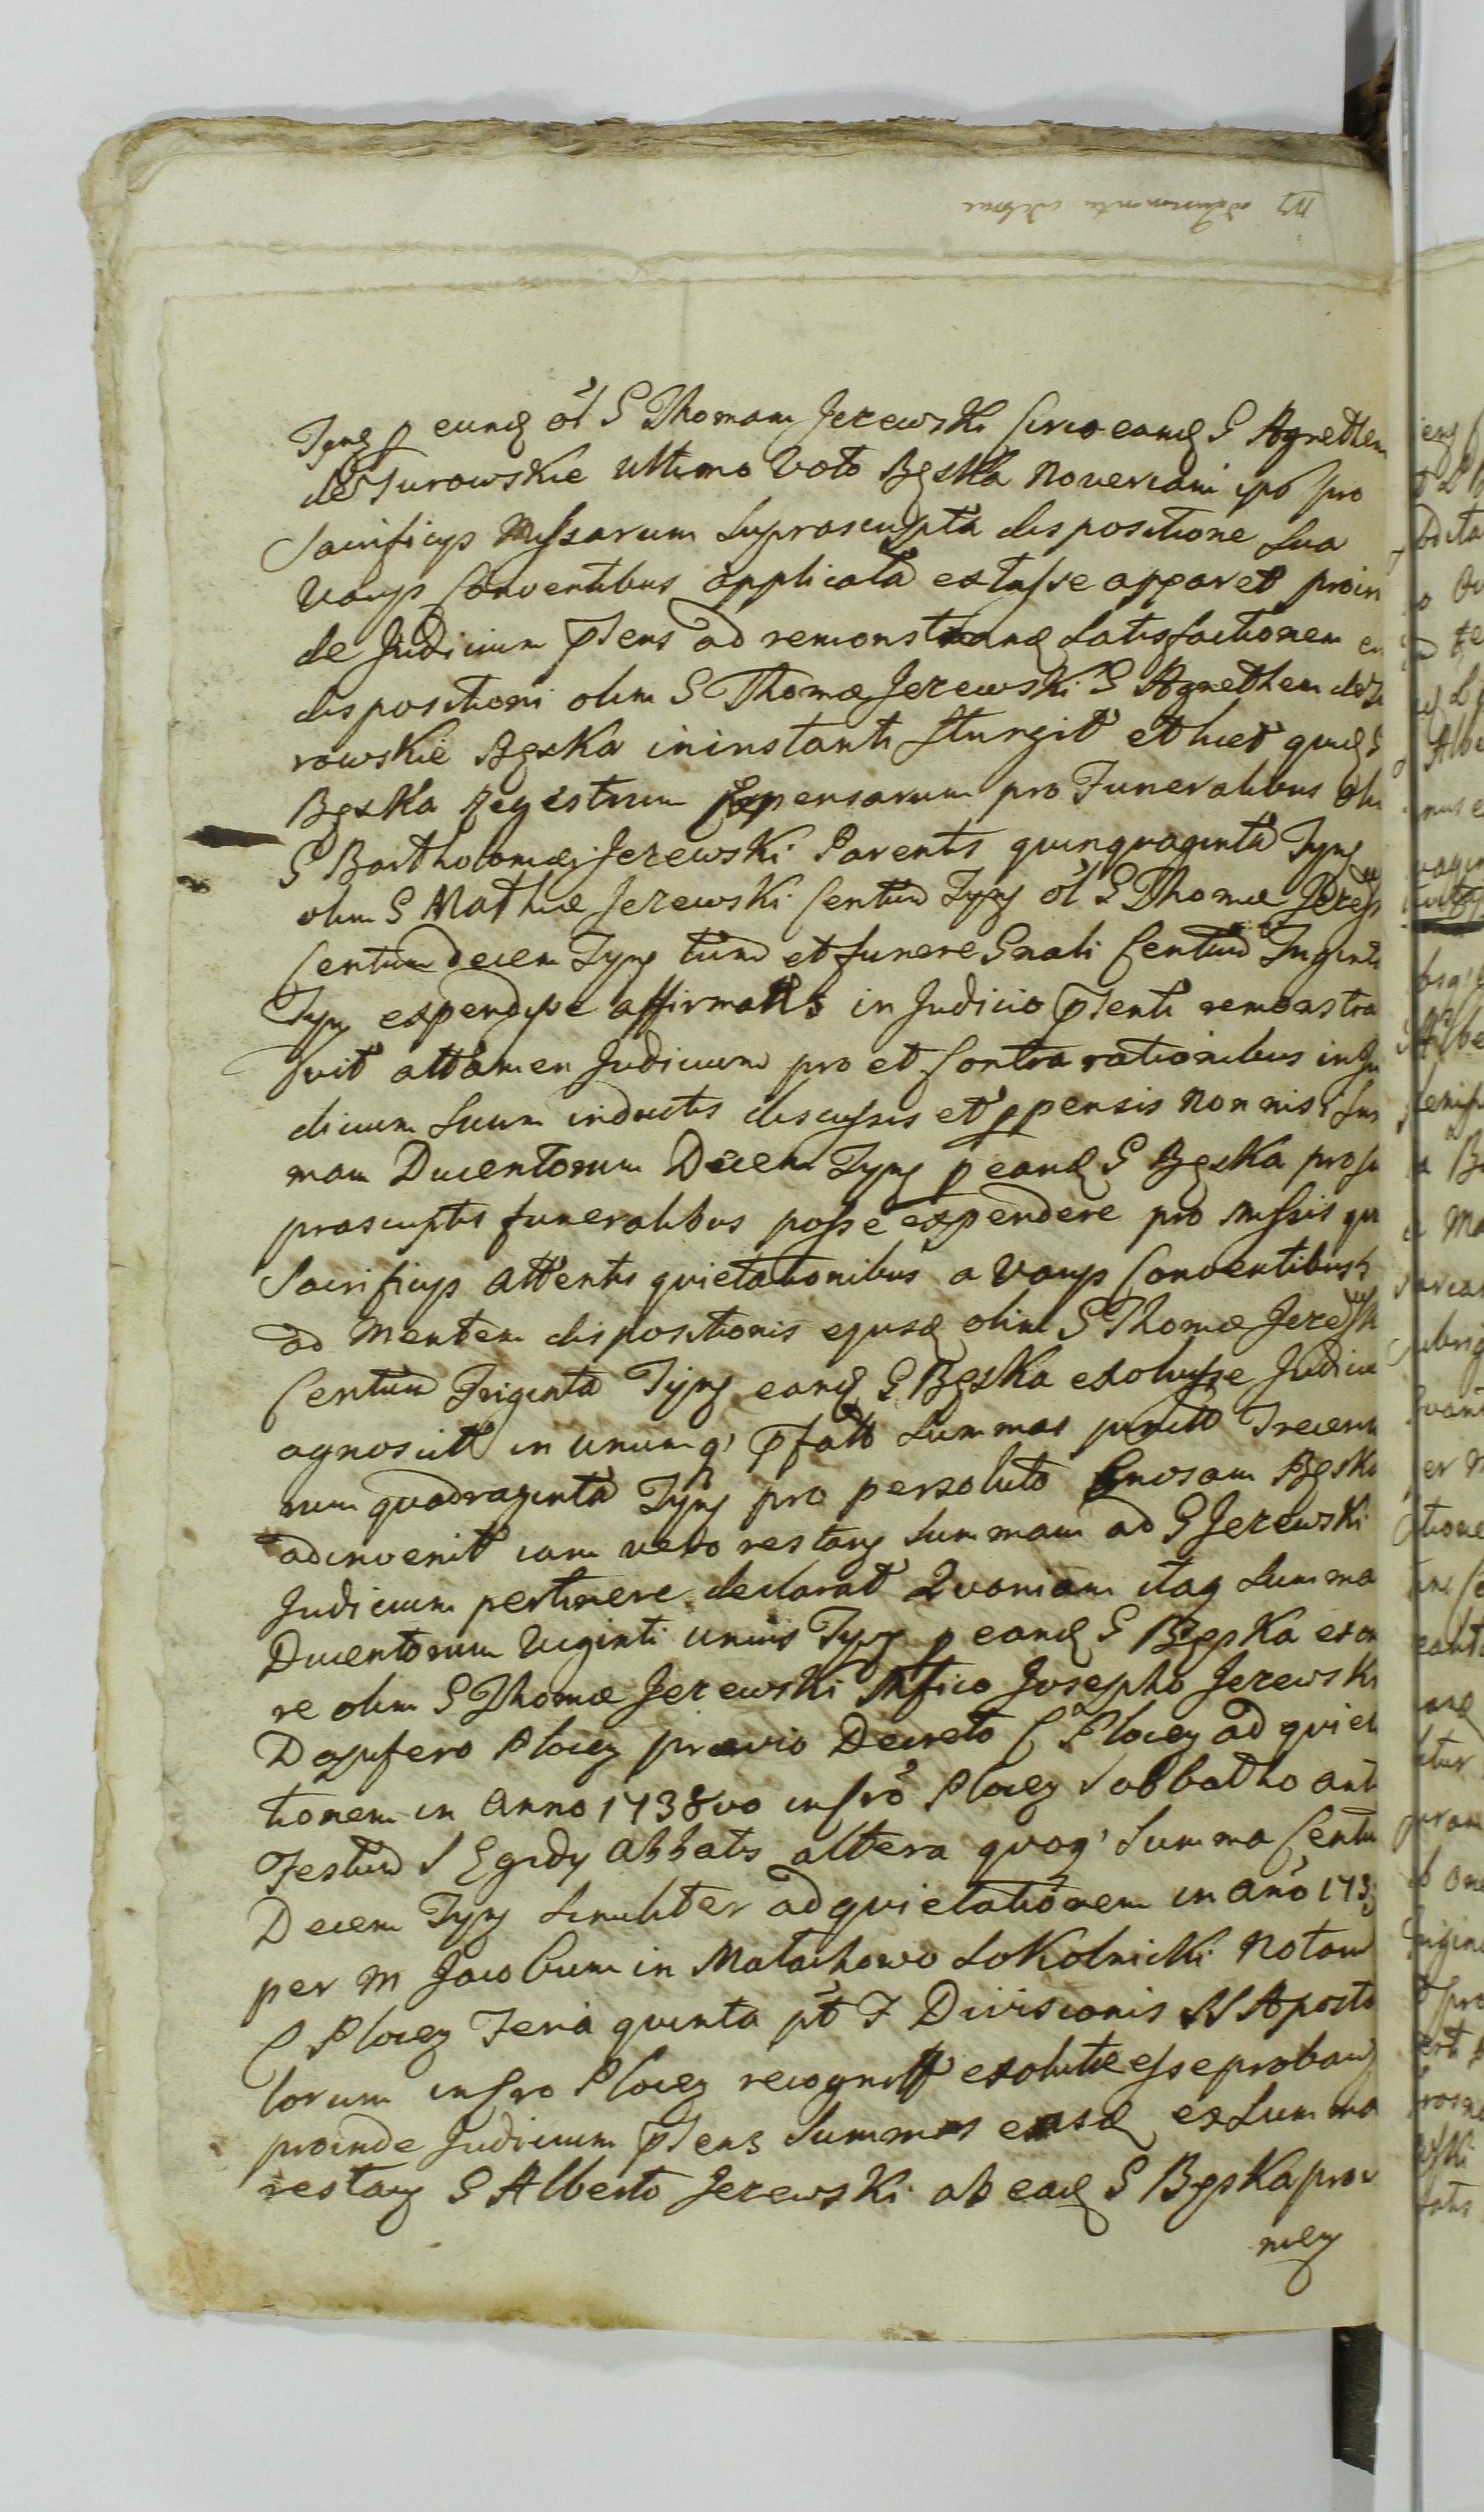 Tyng p eundq ol G Thomam Jezewski circa eandq G Agnethem
de Turowskie ultimo Voto Bgska Novercam ipo pro
Sacrificijs Missarum Suprascripta dispositione Sua
Varijs Conventibus applicata extitisse apparet proin
de Judicium psens ad remonstrand Satisfactionem
dispositioni olim G Thomæ Jezewski G Agnethem de Tu
rowskie Bgska in instanti Sturgit et licet quidq G
Bgska Regestrum Expensarum pro Funeralibus oli
G Bartholomæi Jezewski Parentis quinquaginta Tyng
olim G Mathiæ Jezewski Centum Tyng ol G Thomæ Jezews
Centum decem Tyng tum et funere Gnali Centum Triginta
Tyng expendisse affirmans in Judicio psenti remonstra
vit attamen Judicium pro et Contra rationibus in Ju
dicium Suum inductis discussis et ppensis non nisi Sum
mam Ducentorum Decem Tyng p eandq G Bgska pro Su
prascriptis funeralibus posse expendere pro missis qu
Sacrificijs attentis quietationibus a Varijs Conventibus
ad mentem dispositionis ejusdq olim G Thomæ Jezewsk
Centum Triginta Tyng eandq G Bgska exolvisse Judiciu
agnoscit in unum q' pfatt Summas junctt Trecento
rum quadraginta Tyng pro persoluto Gnosam Bgska
adinvenit iam vero restang Summam ad G Jezewski
Judicium pertinere declarat Quoniam itaq Summa
Ducentorum Viginti unius Tyng p eandq G Bgska
re olim G Thomæ Jezewski Mfico Josepho Jezewski
Dapifero Plocen prævio Decreto C Plocen ad quieta
tionem in Anno 1738vo in fro Plocen Sabbatho ant
Festum S Egidy Abbatis altera quoq' Summa Centu
Decem Tyng Similiter ad quietationem in Ano 173
per M Jacobum in Malachowo Sokolnicki Notariu
C Plocen Feria quinta pt F Divisionis SS Aposto
lorum in fro Plocen recognitt exolutæ esse proban
proinde Judicium psens Summas easdq ex Summa
restang G Alberto Jezewski ab eadq G Bgska prov
nien